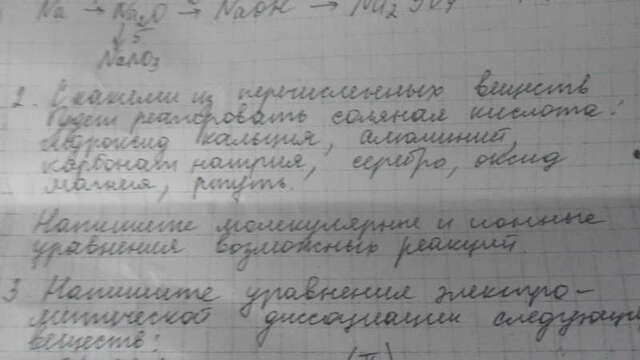 Na → Na₂O → NaOH → Na₂SO₄
↓ 5
NaNO₃
2. С какими из перечисленных веществ
будет реагировать соляная кислота:
гидроксид кальция, алюминий,
карбонат натрия, серебро, оксид
магния, ртуть.
Напишите молекулярные и ионные
уравнения возможных реакций.
3 Напишите уравнения электро-
литической диссоциации следующих
веществ:
(II)